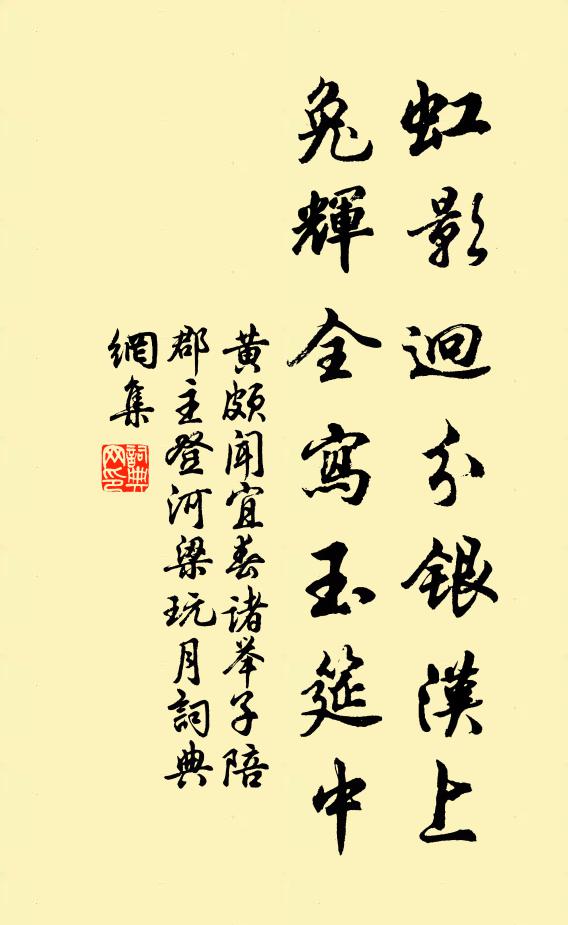 虹影迥分銀漢上
兔輝全寫玉筵中
黄頗闻宜春诸举子陪
郡主登河梁玩月詞典
網集
詞典網印